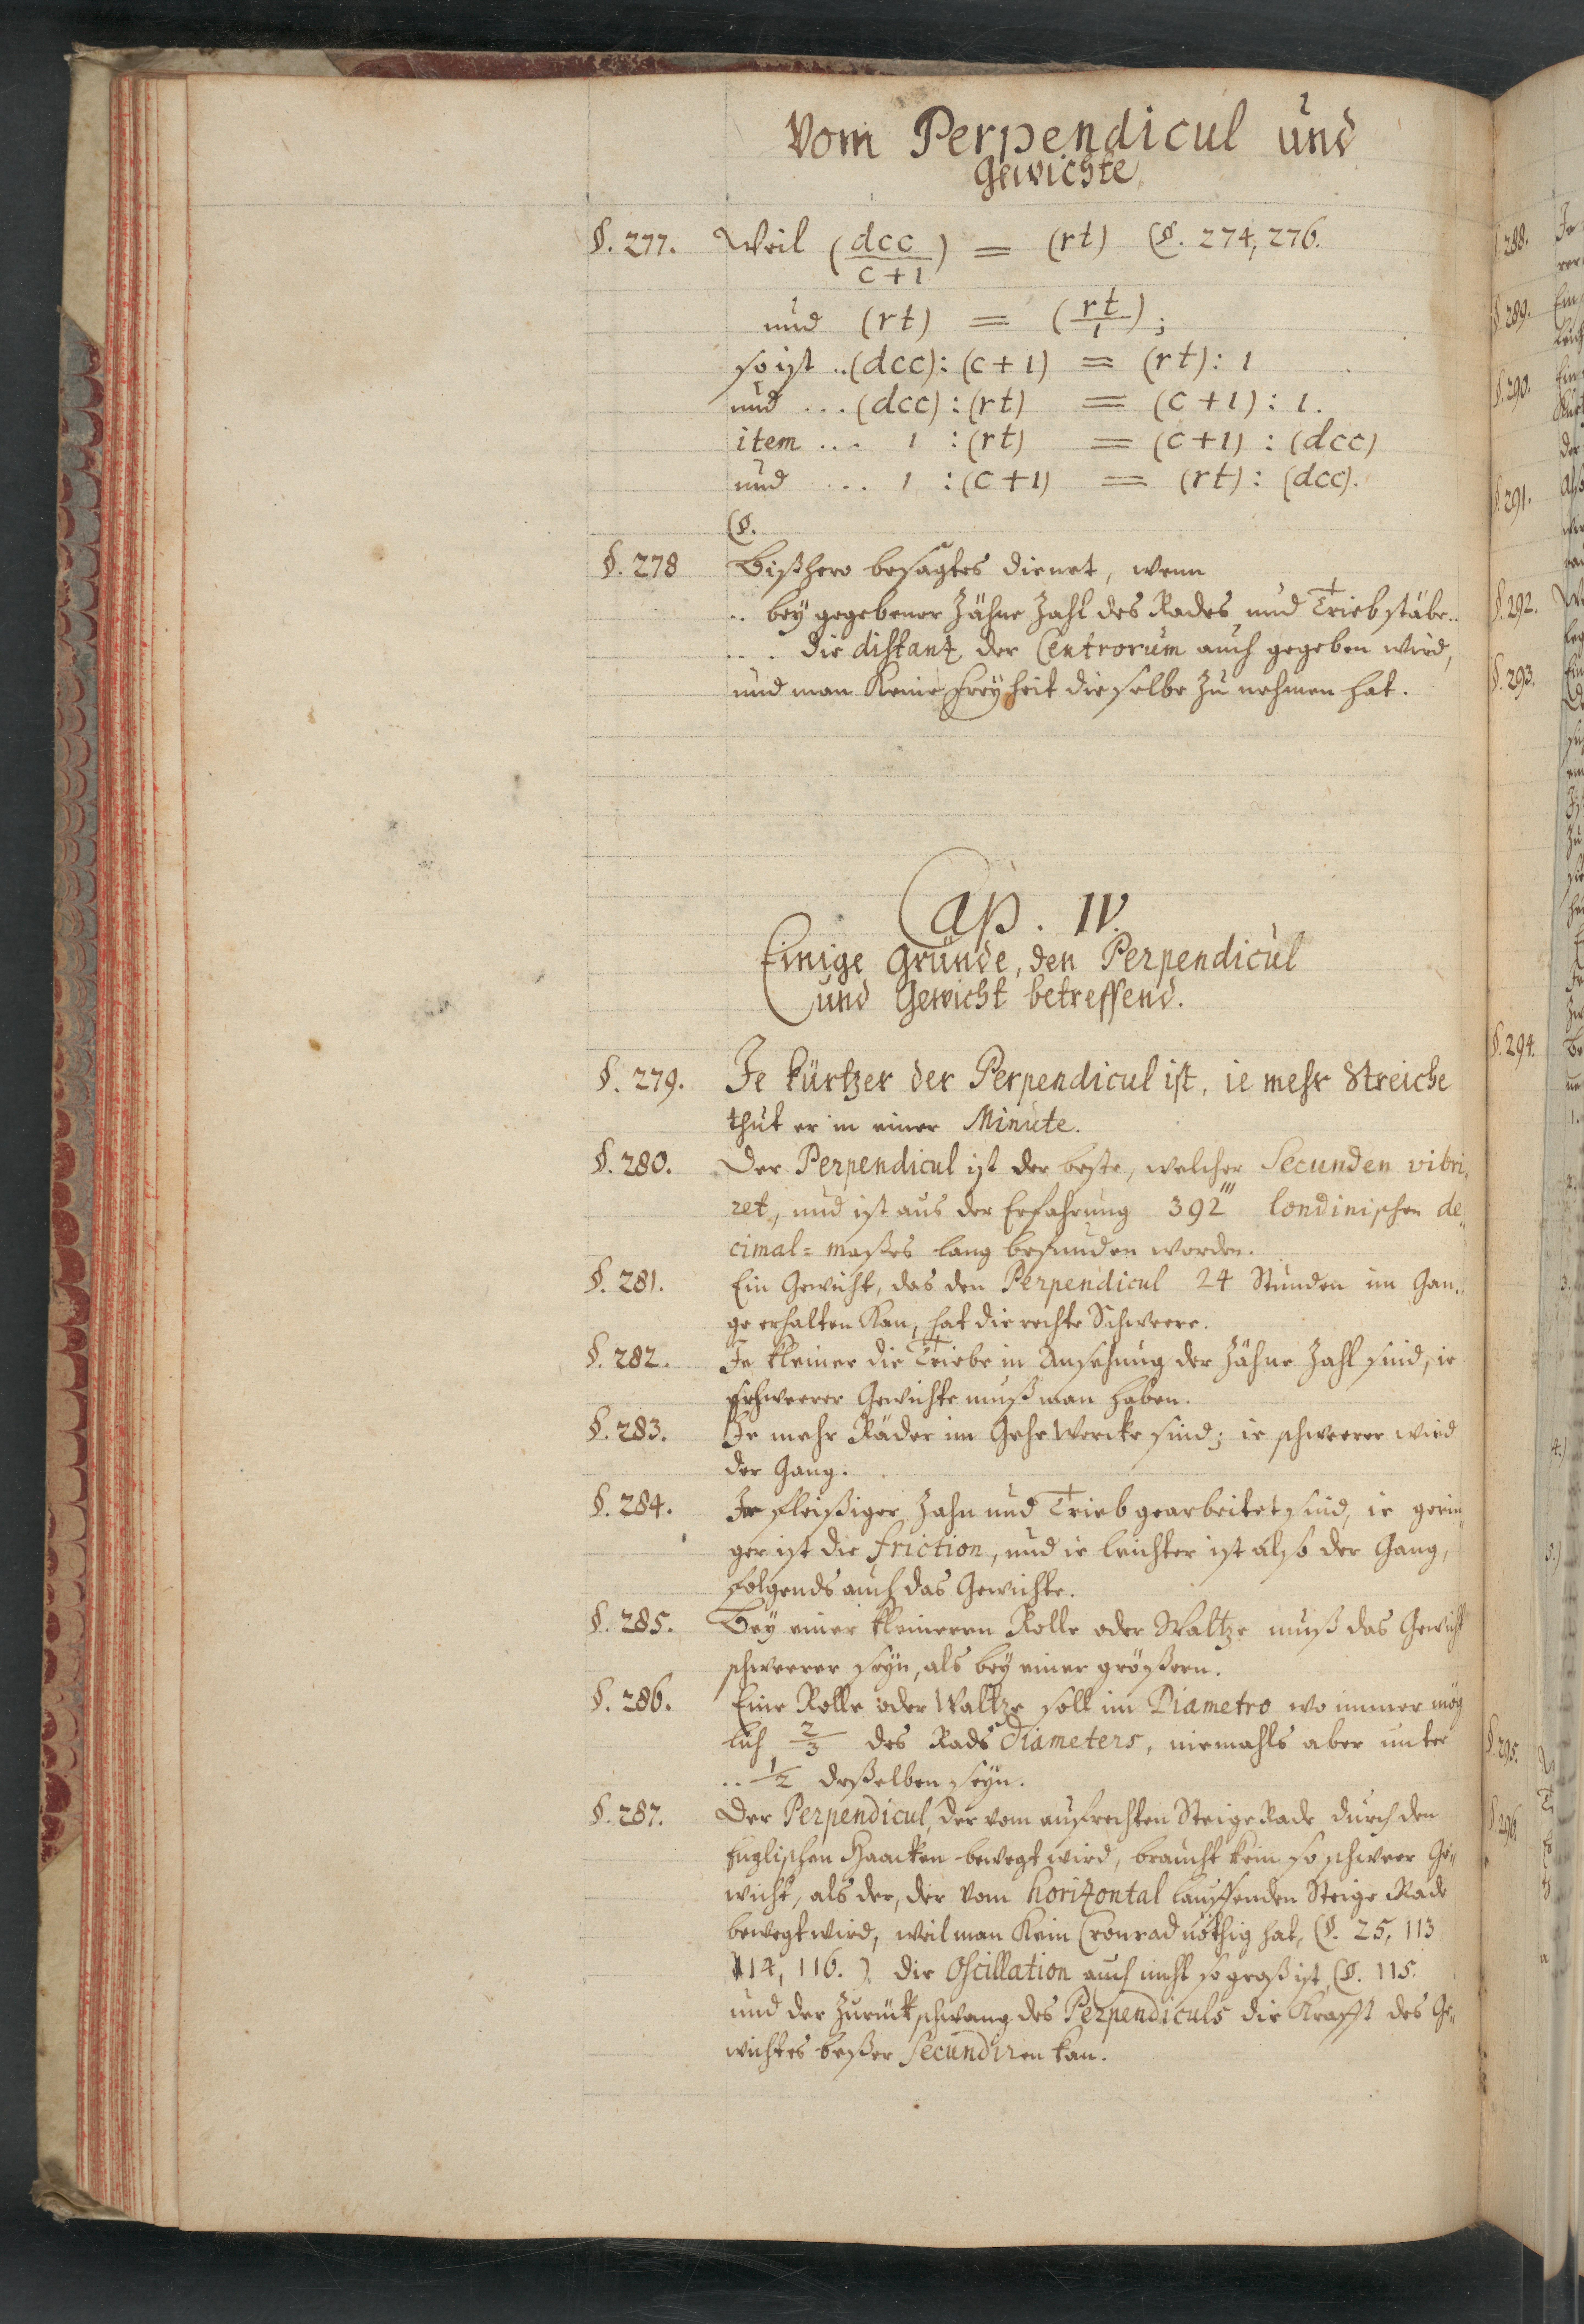 Vom Perpendicul und
Gewichte
§. 277. Weil (dcc/c+1) = (rt) (§. 274, 276.
und (rt) = (rt/1);
so ist ..(dcc): (c+1) = (rt): 1
und ... (dcc) : (rt) = (c+1) : 1.
item ... 1 : (rt) = (c+1) : (dcc)
und ... 1 : (c+1) = (rt) : (dcc).
(§.
§. 278 Bißhero besagtes dienet, wenn
.. bey gegebener Zähne Zahl des Rades und Triebstäbe..
... die distanz der Centrorum auch gegeben wird,
und man keine Freyheit dieselbe zu nehmen hat.
Cap. IV.
Einige Gründe, den Perpendicul
und Gewicht betreffend.
§. 279. Je kürtzer der Perpendicul ist, ie mehr Streiche
thut er in einer Minute.
§. 280. Der Perpendicul ist der beste, welcher Secunden vibri-
ret, und ist aus der Erfahrung 392''' londinischen de-
cimal= maßes lang befunden worden.
§. 281. Ein Gewicht, das den Perpendicul 24 Stunden im Gan-
ge erhalten kan, hat die rechte Schweere.
§. 282. Je kleiner die Triebe in Ansehung der Zähne Zahl sind, ie
schweerer Gewichte muß man haben.
§. 283. Je mehr Räder im Gehe Wercke sind; ie schweerer wird
der Gang.
§. 284. Je fleißiger Zahn und Trieb gearbeitet sind, ie gerin-
ger ist die friction, und ie leichter ist also der Gang,
folgends auch das Gewichte.
§. 285. Bey einer kleineren Rolle oder Waltze muß das Gewicht
schweerer seyn, als bey einer größern.
§. 286. Eine Rolle oder Waltze soll im Diametro wo immer mög
lich 2/3 des Rads Diameters, niemahls aber unter
.. 1/2 deßelben seyn.
§. 287. Der Perpendicul, der vom aufrechten Steige Rade durch den
Englischen Haacken bewegt wird, braucht kein so schweer Ge-
wicht, als der, der vom horizontal lauffenden Steige Rade
bewegt wird, weil man kein Cronrad nöthig hat, (§. 25, 113
114, 116.) die Oscillation auch nicht so groß ist, (§. 115.
und der Zurückschwang des Perpendiculs die Krafft des Ge-
wichtes beßer secundiren kan.
§. 288.
§. 289.
§. 290.
§. 291.
§. 292.
§. 293.
§. 294.
§. 295.
§. 296.